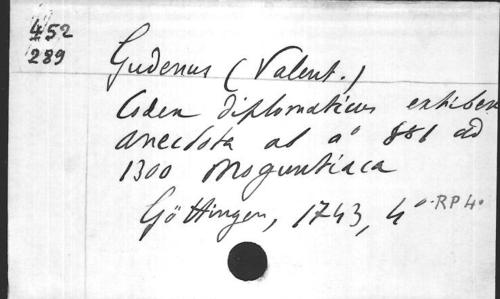 452
289
Gudenus (Valent.)
Codex diplomaticus exhibens
anecdota ab aº 881 ad
1300 Moguntiaca
Göttingen, 1743, 4º RP 4º